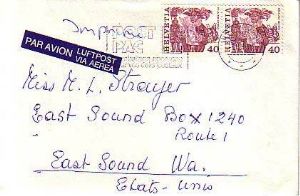 Imprimé
PAX
HELVETIA 40
HELVETIA 40
PAR AVION LUFTPOST
VIA AEREA
Miss M. L. Strayer
East Sound Box 1240
Route 1
East Sound Wa.
Etats-Unis